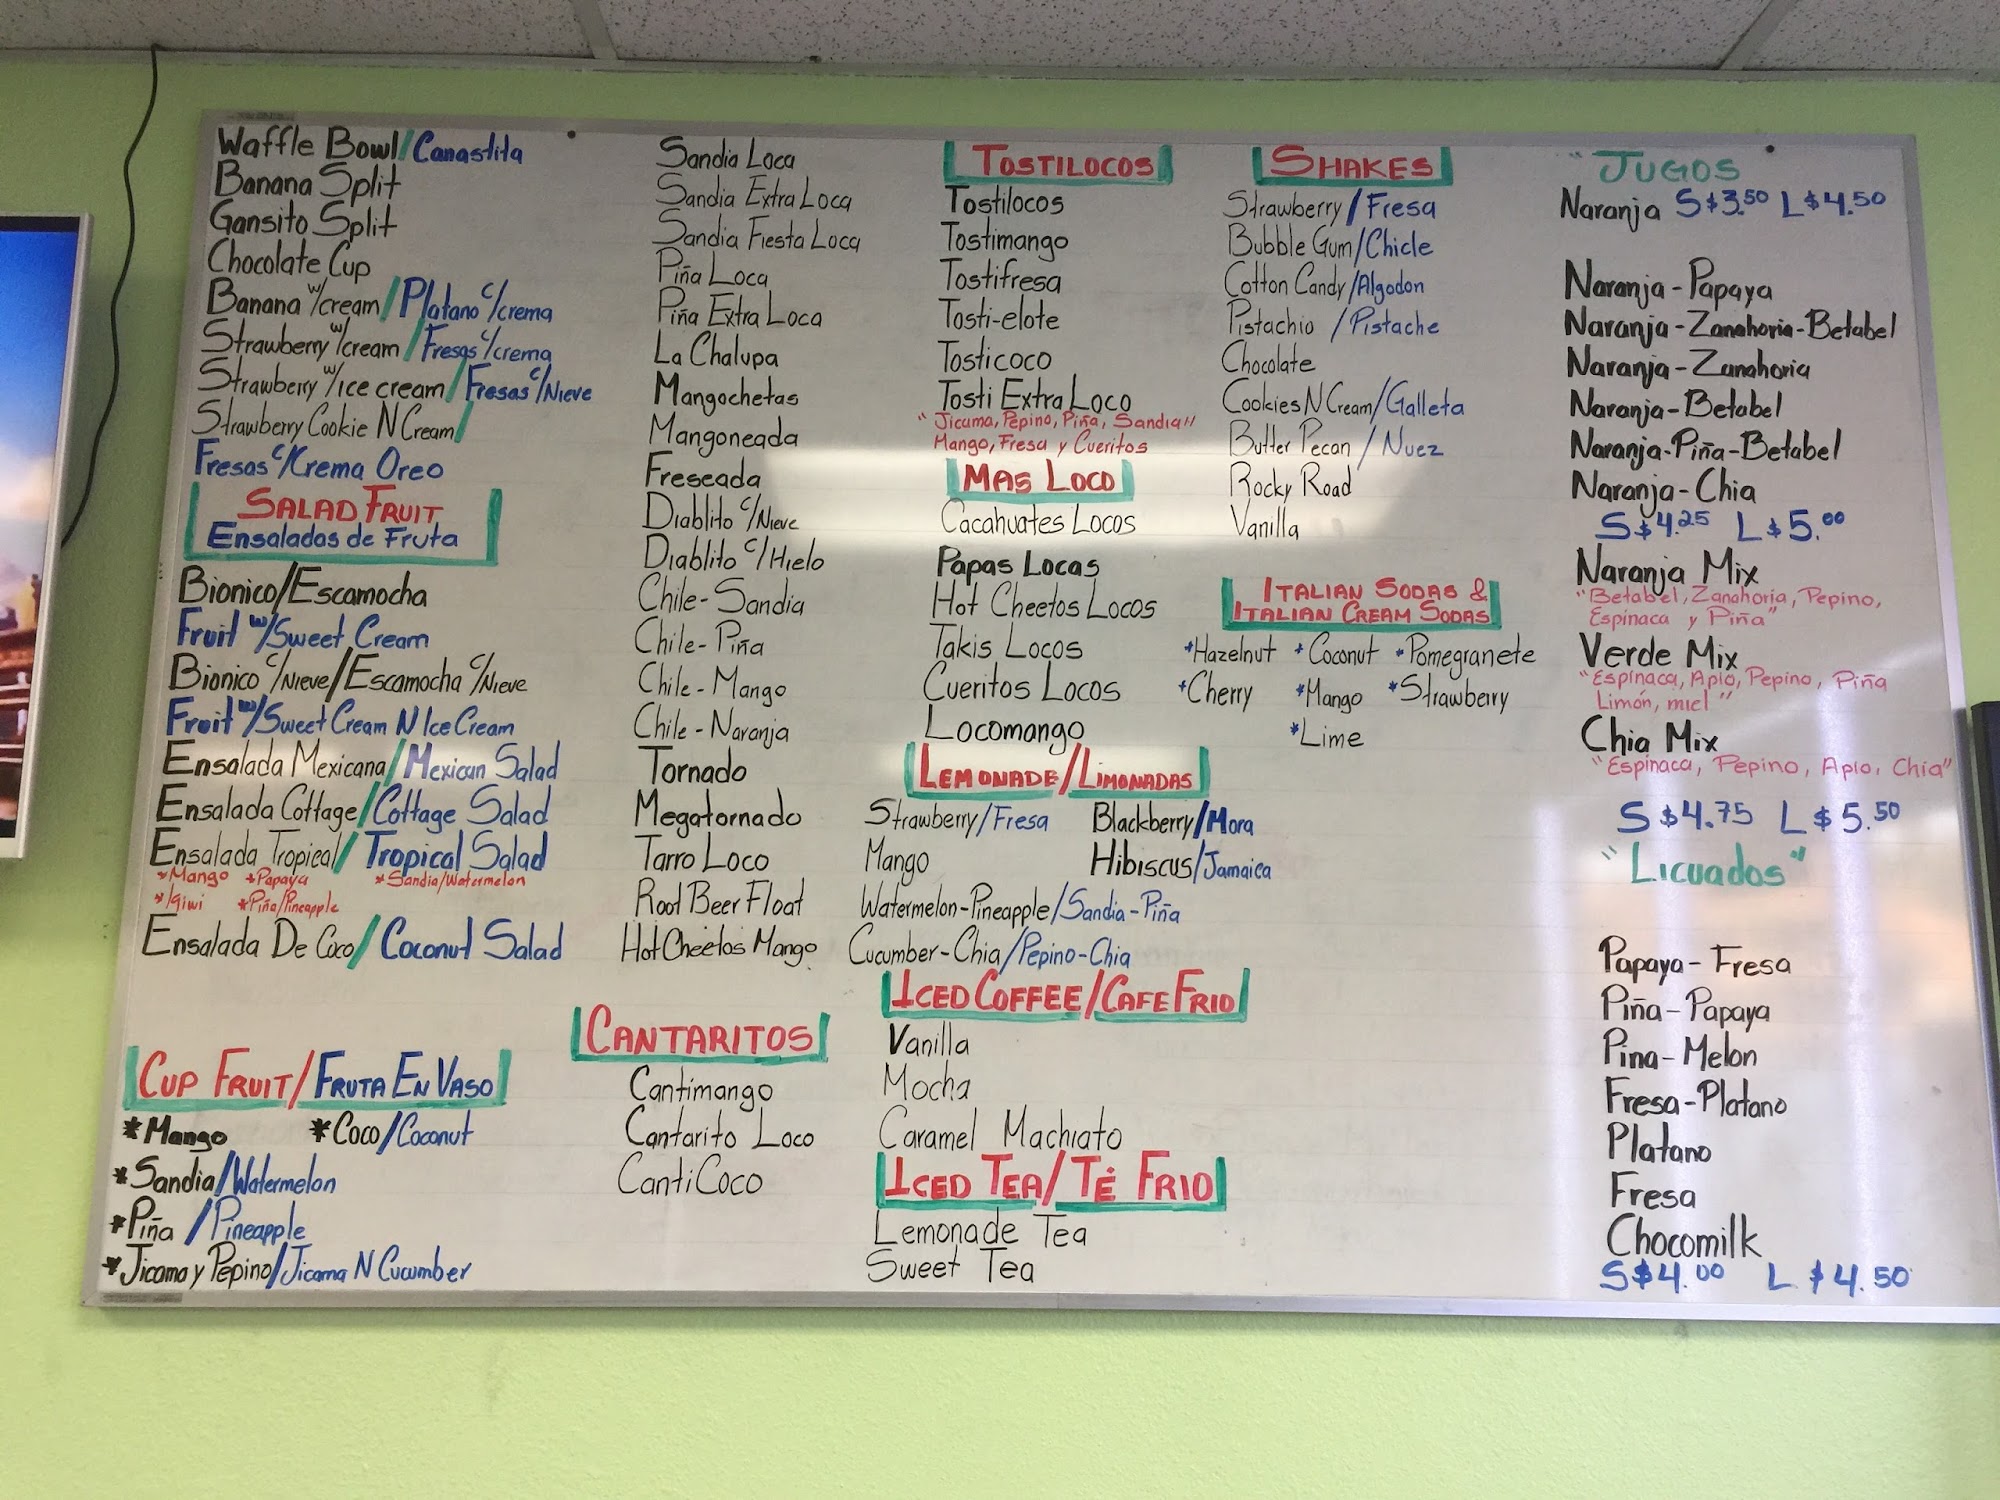 Waffle Bowl/Canastita
Banana Split
Gansito Split
Chocolate Cup
Banana w/cream/Platano c/crema
Strawberry w/cream/Fresas c/crema
Strawberry w/ice cream/Fresas c/Nieve
Strawberry Cookie N Cream/
Fresas c/Crema Oreo
Salad Fruit
Ensaladas de Fruta
Bionico/Escamocha
Fruit w/Sweet Cream
Bionico c/Nieve/Escamocha c/Nieve
Fruit w/Sweet Cream N Ice Cream
Ensalada Mexicana/Mexican Salad
Ensalada Cottage/Cottage Salad
Ensalada Tropical/Tropical Salad
*Mango *Papaya *Sandia/Watermelon
*Kiwi *Piña/Pineapple
Ensalada De Coco/Coconut Salad
Cup Fruit/Fruta En Vaso
*Mango *Coco/Coconut
*Sandia/Watermelon
*Piña/Pineapple
*Jicama y Pepino/Jicama N Cucumber
Sandia Loca
Sandia Extra Loca
Sandia Fiesta Loca
Piña Loca
Piña Extra Loca
La Chalupa
Mangochetas
Mangoneada
Freseada
Diablito c/Nieve
Diablito c/Hielo
Chile-Sandia
Chile-Piña
Chile-Mango
Chile-Naranja
Tornado
Megatornado
Tarro Loco
Root Beer Float
Hot Cheetos Mango
Cantaritos
Cantimango
Cantarito Loco
CantiCoco
Tostilocos
Tostilocos
Tostimango
Tostifresa
Tosti-elote
Tosticoco
Tosti Extra Loco
"Jicama, Pepino, Piña, Sandia"
Mango, Fresa y Cueritos
Mas Loco
Cacahuates Locos
Papas Locas
Hot Cheetos Locos
Takis Locos
Cueritos Locos
Locomango
Lemonade/Limonadas
Strawberry/Fresa Blackberry/Mora
Mango Hibiscus/Jamaica
Watermelon-Pineapple/Sandia-Piña
Cucumber-Chia/Pepino-Chia
Iced Coffee/Cafe Frio
Vanilla
Mocha
Caramel Machiato
Iced Tea/Té Frio
Lemonade Tea
Sweet Tea
Shakes
Strawberry/Fresa
Bubble Gum/Chicle
Cotton Candy/Algodon
Pistachio/Pistache
Chocolate
Cookies N Cream/Galleta
Butter Pecan/Nuez
Rocky Road
Vanilla
Italian Sodas &
Italian Cream Sodas
*Hazelnut *Coconut *Pomegranete
*Cherry *Mango *Strawberry
*Lime
"Jugos
Naranja S $3.50 L $4.50
Naranja-Papaya
Naranja-Zanahoria-Betabel
Naranja-Zanahoria
Naranja-Betabel
Naranja-Piña-Betabel
Naranja-Chia
S $4.25 L $5.00
Naranja Mix
"Betabel, Zanahoria, Pepino,
Espinaca y Piña"
Verde Mix
"Espinaca, Apio, Pepino, Piña
Limón, miel"
Chia Mix
"Espinaca, Pepino, Apio, Chia"
S $4.75 L $5.50
"Licuados"
Papaya-Fresa
Piña-Papaya
Pina-Melon
Fresa-Platano
Platano
Fresa
Chocomilk
S $4.00 L $4.50